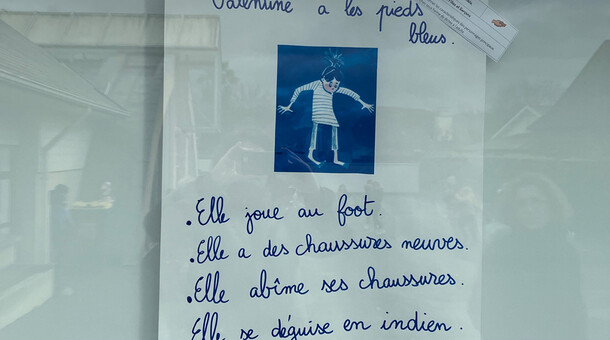 Valentine a les pieds
bleus.
.Elle joue au foot.
.Elle a des chaussures neuves.
.Elle abîme ses chaussures.
Elle se déguise en indien.